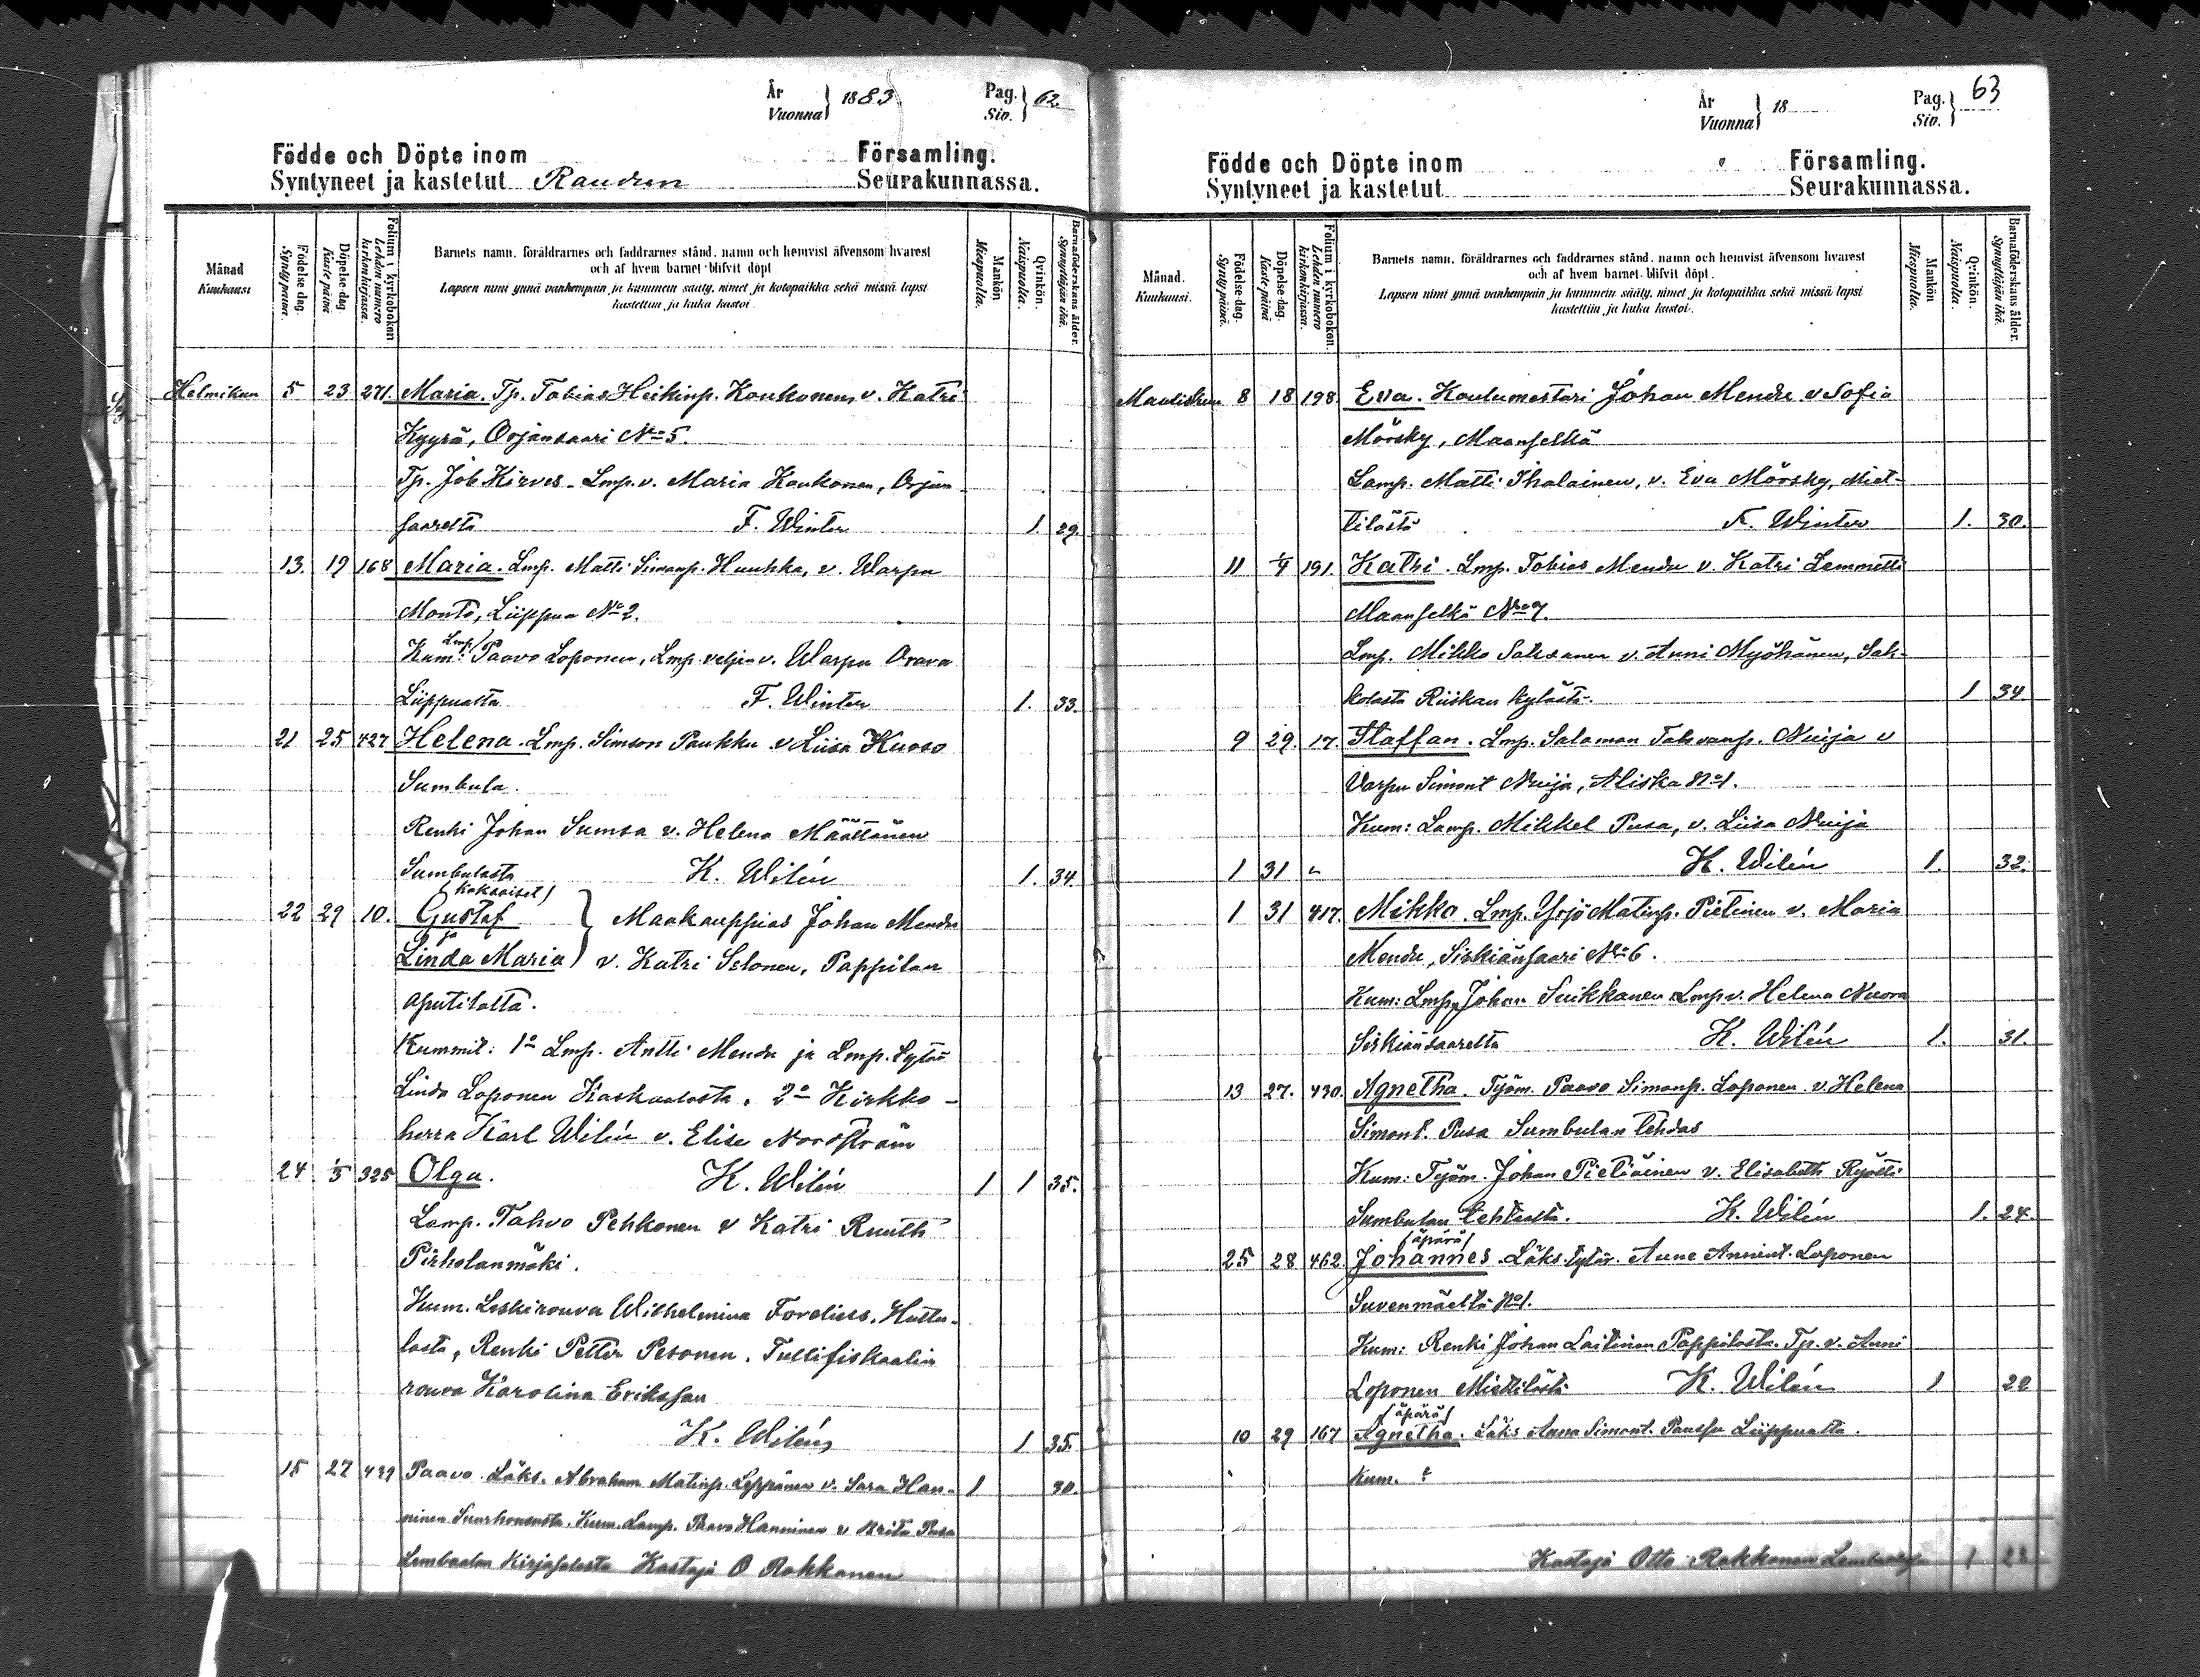 År
Vuonna } 1883.
Pag.
Siv. } 62.
Födde och Döpte inom Församling.
Syntyneet ja kastetut Raudun Seurakunnassa.
Månad
Kuukausi
Födelse dag.
Synty päivä.
Döpelse dag.
Kaste päivä
Folium i kyrkoboken
Lehden numero kirkonkirjassa.
Barnets namn. föräldrarnes och faddrarnes stånd. namn och hemvist äfvensom hvarest
och af hvem barnet blifvit döpt
Lapsen nimi ynnä vanhempain ja kummein sääty. nimet ja kotopaikka sekä missä lapsi
kastettiin ja kuka kastoi.
Mankön
Miespuolta.
Qvinkön.
Naispuolta.
Barnaföderskans ålder.
Synnyttäjän ikä.
Helmikuu 5 23 271. Maria. Tp. Tobias Heikinp. Koukonen, v. Katri
Kyyrä, Orjansaari No 5.
Tp. Job Kirves. Lmp. v. Maria Koukonen, Orjan
saarelta F. Winter 1. 29.
13. 19 168 Maria. Lmp. Matti Simonp. Huuhka, v. Warpu
Monto, Liippua No 2.
Kum: Lmp Paavo Loponen, Lmp veljen v. Warpu Orava
Liippuasta F. Winter 1. 33.
21 25 427 Helena. Lmp. Simson Paukku v Liisa Kuoso
Sumbula.
Renki Johan Sumsa v. Helena Määttänen
Sumbulasta K. Wilén 1. 34.
(kaksoiset)
22 29 10. Gustaf } Maakauppias Johan Mendu
ja
Linda Maria } v. Katri Selonen, Pappilan
aputilalta.
Kummit: 1o Lmp. Antti Mendu ja Lmp. tytär
Linda Loponen Kaskaalasta. 2o Kirkko-
herra Karl Wilén v. Elise Nordström
24 1/3 325 Olga. K. Wilén 1 1 35.
Lamp. Tahvo Pehkonen v Katri Ruuth
Pirholanmäki.
Kum. Leskirouva Wilhelmina Forelius, Huttu-
lasta, Renki Petter Pesonen. Tullifiskaalin
rouva Karolina Eriksson
K. Wilén 1 35.
15 27 439 Paavo Läks. Abraham Matinp. Leppänen v. Sara Han- 1 30.
ninen Suurhoususta. Kum. Lamp. Paavo Hanninen v Krita Pusa
Lembaalan Kirjasalosta Kastaja O Rokkanen
År
Vuonna } 18
Pag.
Siv. } 63
Födde och Döpte inom Församling.
Syntyneet ja kastetut Seurakunnassa.
Månad.
Kuukausi.
Födelse dag.
Synty päivä.
Döpelse dag.
Kaste päivä
Folium i kyrkoboken.
Lehden numero kirkonkirjassa.
Barnets namn. föräldrarnes och faddrarnes stånd. namn och hemvist äfvensom hvarest
och af hvem barnet. blifvit döpt.
Lapsen nimi ynnä vanhempain ja kummein sääty. nimet ja kotopaikka sekä missä lapsi
kastettiin ja kuka kastoi.
Mankön
Miespuolta.
Qvinkön.
Naispuolta.
Barnaföderskans ålder.
Synnyttäjän ikä.
Maaliskuu 8 18 198. Eva. Koulumestari Johan Mendu v Sofia
Mörsky, Maanselkä
Lamp. Matti Ihalainen, v. Eva Mörsky, Miet-
tilästä F. Winter 1. 30.
11 1/4 191. Katri. Lmp. Tobias Mendu v. Katri Lemmetti
Maanselkä Nro 7.
Lmp. Mikko Saksanen v. Anni Myöhänen, Sak-
kolasta Riiskan kylästä. 1 34
9 29. 17. Staffan. Lmp. Salomon Tahvanp. Nuija v
Varpu Simont Nuija, Aliska No 1.
Kum: Lamp. Mikkel Pusa, v. Liisa Nuija
1 31 K. Wilén 1. 32.
1 31 417. Mikko. Lmp. Yrjö Matinp. Pietinen v. Maria
Mendu, Sirkiänsaari No 6.
Kum: Lmp. Johan Suikkanen Lmp v. Helena Nuora
Sirkiänsaarelta K. Wilén 1. 31.
13 27. 430. Agnetha. Työm. Paavo Simonp. Loponen v. Helena
Simont. Pusa Sumbulan tehdas
Kum: Työm. Johan Pietiäinen v. Elisabeth Ryötti
Sumbulan tehtaalta. K. Wilén 1. 24.
(äpärä)
25 28 462. Johannes. Läks. tytär. Anne Annint. Loponen
Suvenmäeltä No 1.
Kum: Renki Johan Laitinen Pappilasta. Tp. v. Anni
Loponen Miettilästä K. Wilén 1 22
(äpärä)
10 29 167 Agnetha. Läks Anna Simont. Paukku Liippuasta.
Kum. ?
Kastaja Otto Rokkanen 1 23